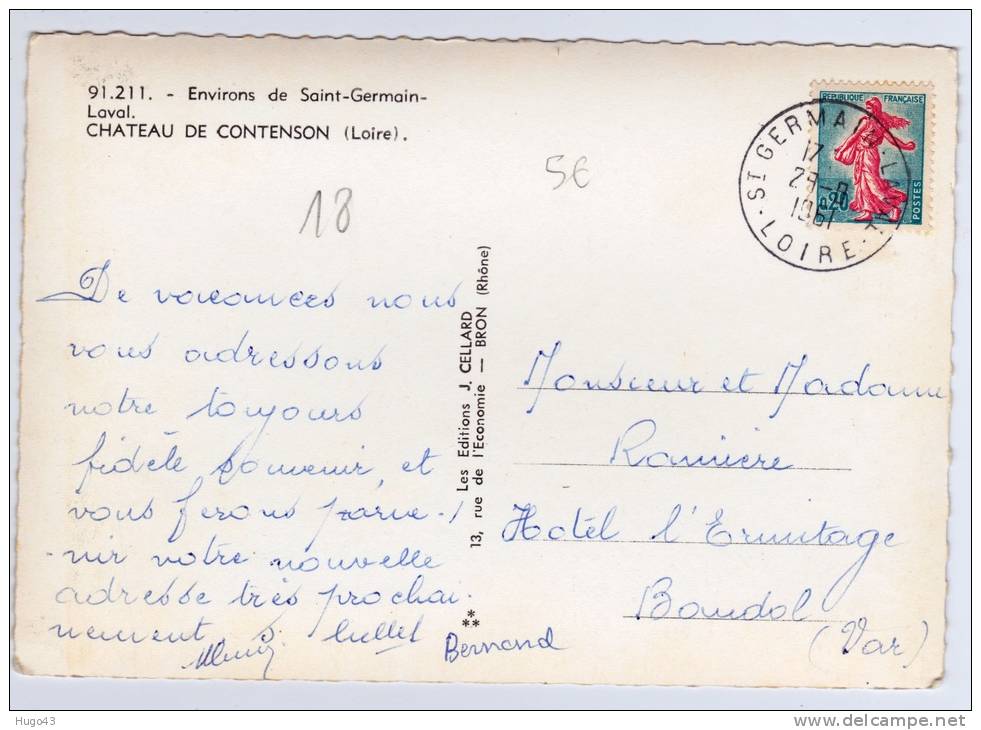 91.211. - Environs de Saint-Germain-
Laval.
CHATEAU DE CONTENSON (Loire).
5€
18
REPUBLIQUE FRANÇAISE
0,20
POSTES
ST GERMAIN-LAVAL
17
1961
LOIRE
De vacances nous
vous adressons
notre toujours
fidèle souvenir, et
vous ferons parve-
nir votre nouvelle
adresse très prochai-
nement,
Bernard
13, rue de l'Economie — BRON (Rhône)
Les Editions J. CELLARD
Monsieur et Madame
Ramière
Hotel l'Ermitage
Bandol
(Var)
Hugo43
delcampe.net